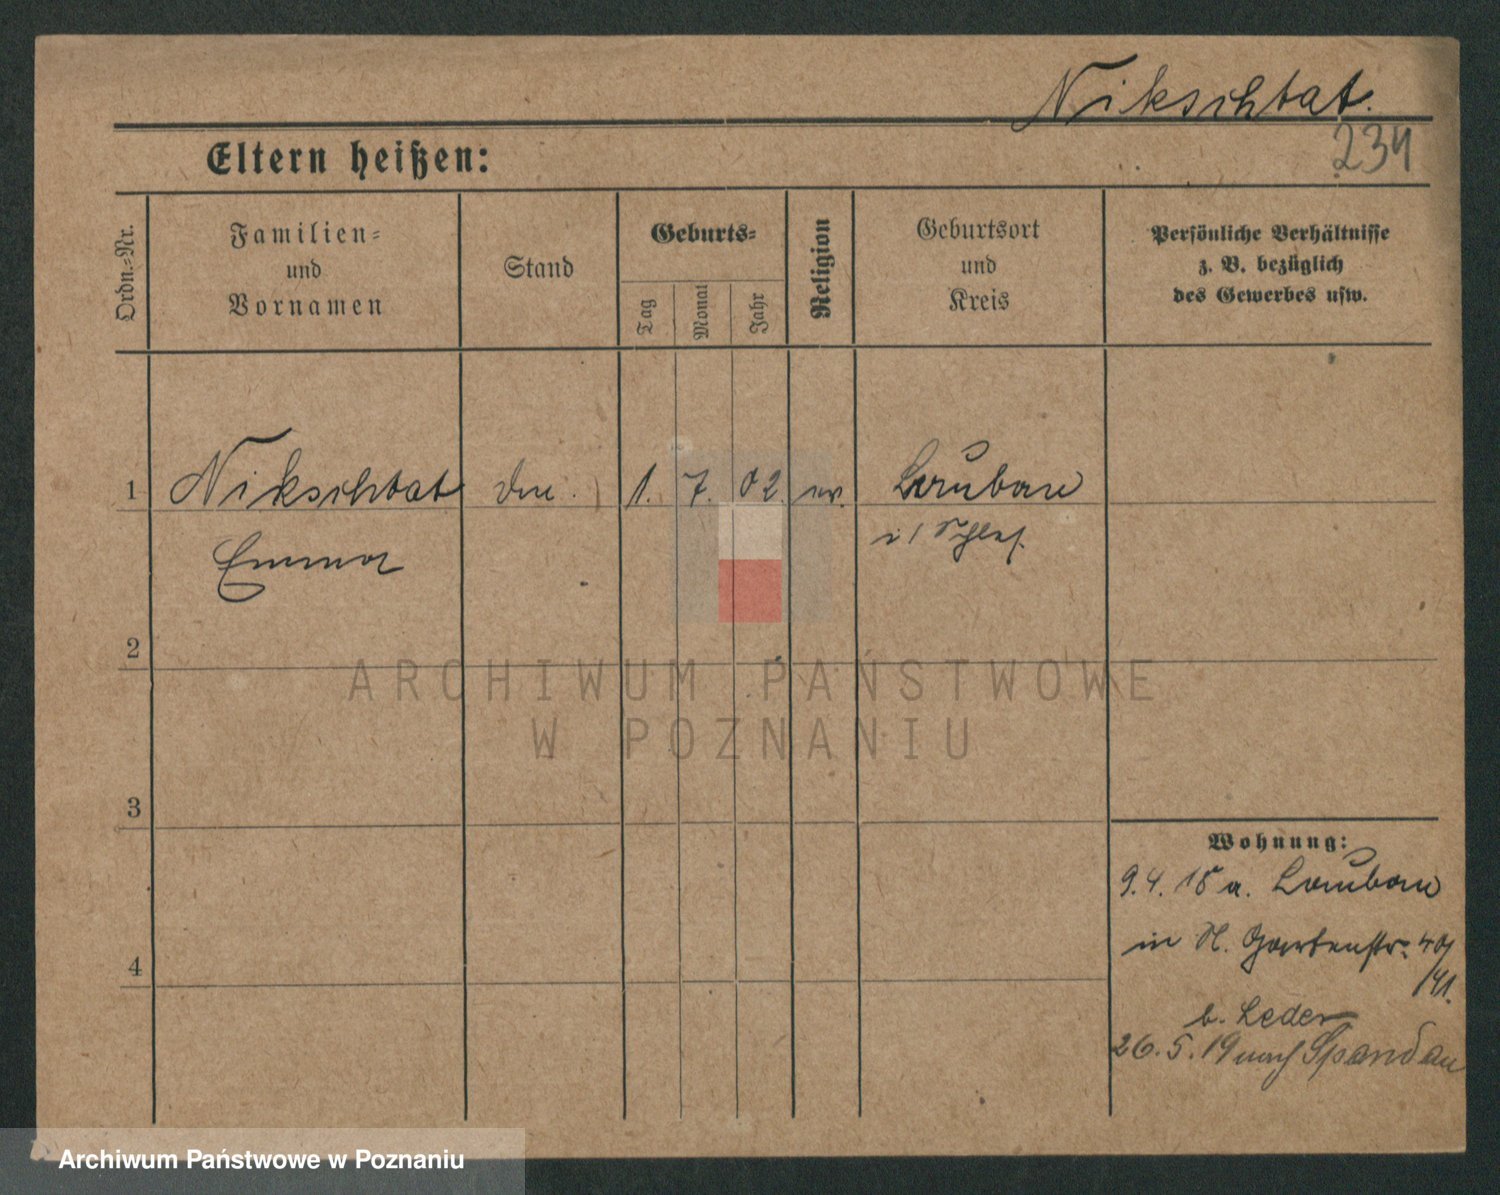 Nikschtat.
234
Eltern heißen:
Ordn.=Nr.
Familien=
und
Vornamen
Stand
Geburts=
Tag
Monat
Jahr
Religion
Geburtsort
und
Kreis
Persönliche Verhältnisse
z. B. bezüglich
des Gewerbes usw.
1
Nikschtat
1. 7. 02
Lauban
Emma
i/ Schles.
2
ARCHIWUM PAŃSTWOWE
W POZNANIU
3
Wohnung:
9. 4. 18 a. Lauban
in Gartenstr. 40
/41.
b. Leder
4
26. 5. 19 nach Spandau
Archiwum Państwowe w Poznaniu